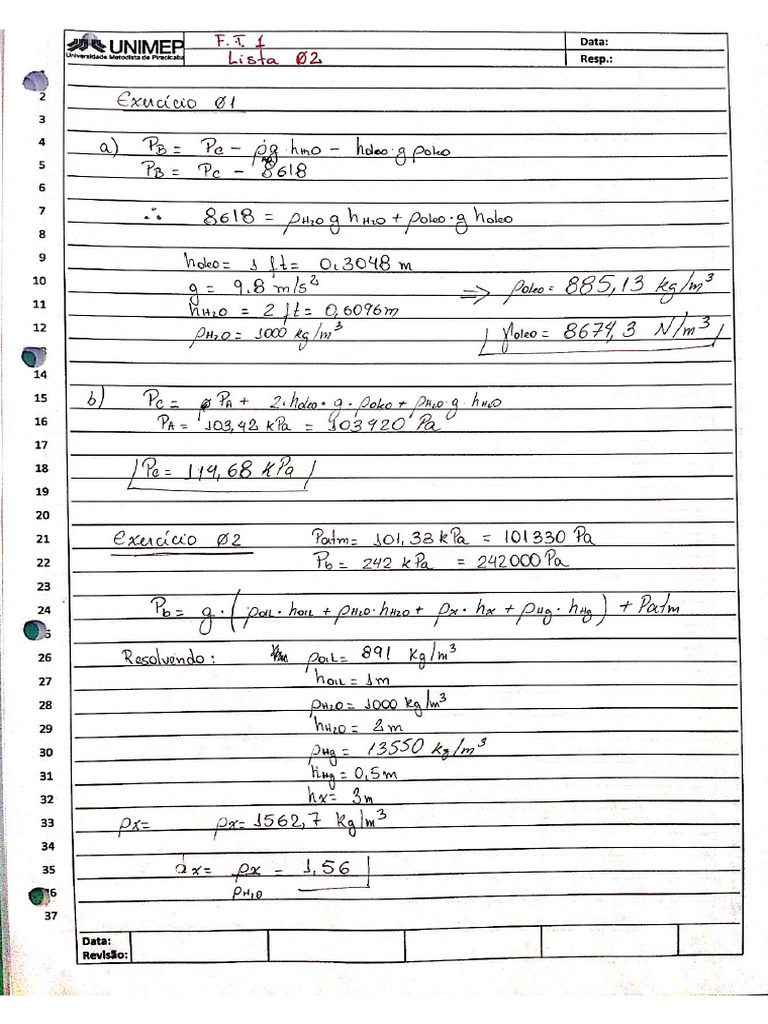 UNIMEP
Universidade Metodista de Piracicaba
F.T.1
Lista 02
Data:
Resp.:
2 Exercício 01
3
4 a) PB = PC - ρg·hH2O - hóleo·g ρóleo
5 PB = PC - 8618
6
7 ∴ 8618 = ρH2O g hH2O + ρóleo·g hóleo
8
9 hóleo = 1 ft = 0.3048 m
10 g = 9.8 m/s² ⇒ ρóleo = 885,13 kg/m³
11 hH2O = 2 ft = 0,6096m
12 ρH2O = 1000 kg/m³ γóleo = 8674,3 N/m³
14
15 b) PC = PA + 2·hóleo·g·ρóleo + ρH2O·g·hH2O
16 PA = 103,42 kPa = 103420 Pa
17
18 PC = 114,68 kPa
19
20
21 Exercício 02 Patm = 101,33 kPa = 101330 Pa
22 Pb = 242 kPa = 242000 Pa
23
24 Pb = g·(ρOIL·hOIL + ρH2O·hH2O + ρX·hX + ρHg·hHg) + Patm
26 Resolvendo: ρOIL = 891 Kg/m³
27 hOIL = 1m
28 ρH2O = 1000 kg/m³
29 hH2O = 2m
30 ρHg = 13550 kg/m³
31 hHg = 0,5m
32 hx = 3m
33 ρx = ρx = 1562,7 Kg/m³
34
35 dx = ρx = 1,56
ρH2O
37
Data:
Revisão: